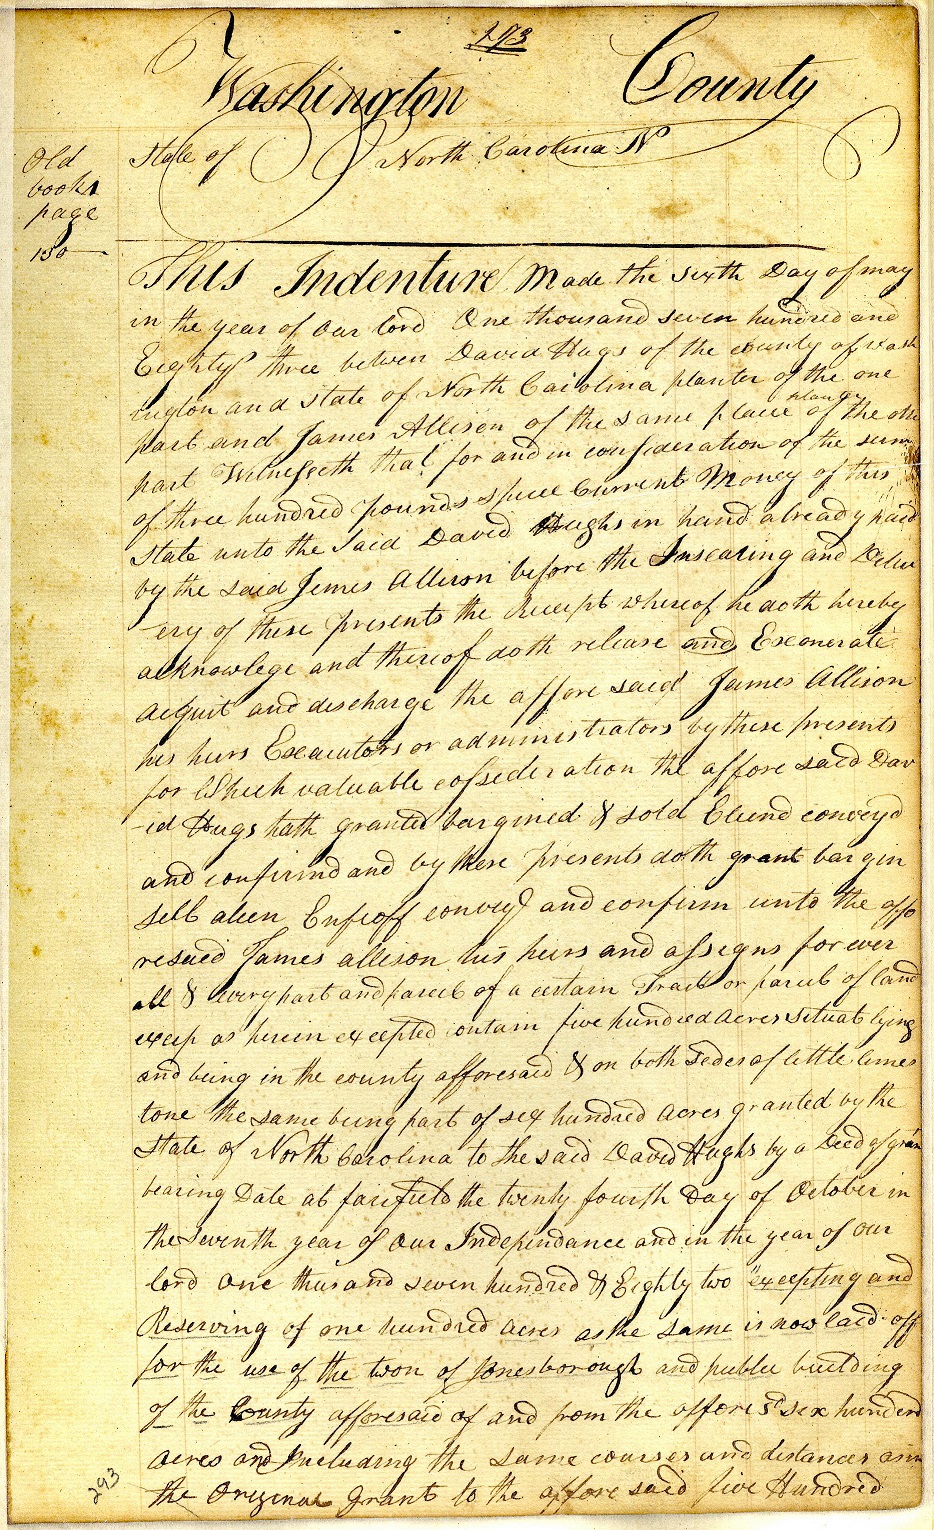 293
Washington County
State of North Carolina
Old
book
page
150
This Indenture Made the sixth Day of may
in the year of our lord One thousand seven hundred and
Eighty three betwen David Hugs of the county of wash
ington and state of North Carolina planter of the one
part and James Allison of the same place of the othe
part Witnesseth that for and in consideration of the sum
of three hundred pounds Current Money of this
state unto the said David Hughs in hand already paid
by the said James Allison before the Insealing and Deliv
-ery of these presents the Receipt whereof he doth hereby
acknowlege and thereof doth release and Exonerate
acquit and discharge the affore said James Allison
his heirs Executors or administrators by these presents
for Which valuable cossederation the affore said Dav
-id Hugs hath granted bargined & sold conveyd
and confirmd and by these presents doth grant bargin
sell alien Enfeoff convey and confirm unto the affo
resaid James allison his heirs and assigns for ever
all & every part and parcel of a certain Tract or parcel of land
excep as herein excepted contain five hundred acres situat lying
and being in the county afforesaid & on both sedes of little limes
tone the same being part of sex hundred acres granted by the
State of North Carolina to the said David Hughs by a Deed of gran
bearing Date at farefield the twenty fourth Day of October in
the seventh year of our Independance and in the year of our
lord One thusand seven hundred & Eighty two "excepting and
Reserving of one hundred acres as the same is now laid off
for the use of the twon of Jonesborough and publec buelding
of the County afforesaid of and from the affore sd sex hunderd
acres and Including the same courses and distances
the Original grant to the affore said five Hundred
293